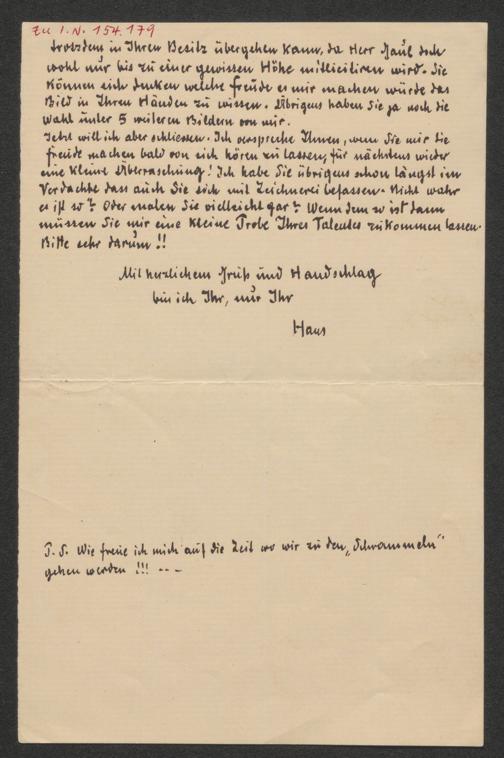 Zu I.N. 154.179
trotzdem in Ihren Besitz übergehen kann, da Herr Jaul doch
wohl nur bis zu einer gewissen Höhe mitlicitiren wird. Sie
können sich denken welche freude es mir machen würde das
Bild in Ihren Händen zu wissen. Übrigens haben Sie ja noch die
Wahl unter 5 weiteren Bildern von mir.
Jetzt will ich aber schliessen. Ich verspreche Ihnen, wenn Sie mir die
freude machen bald von sich hören zu lassen, für nächstens wieder
eine kleine Überraschung! Ich habe Sie übrigens schon längst im
Verdachte dass auch Sie sich mit Zeichnerei befassen. Nicht wahr
es ist so? Oder malen Sie vielleicht gar? Wenn dem so ist dann
müssen Sie mir eine kleine Probe Ihres Talentes zukommen lassen.
Bitte sehr darum!!
Mit herzlichem Gruß und Handschlag
bin ich Ihr, nur Ihr
Hans
P.S. Wie freue ich mich auf die Zeit wo wir zu den „Schwammeln"
gehen werden!!! ---